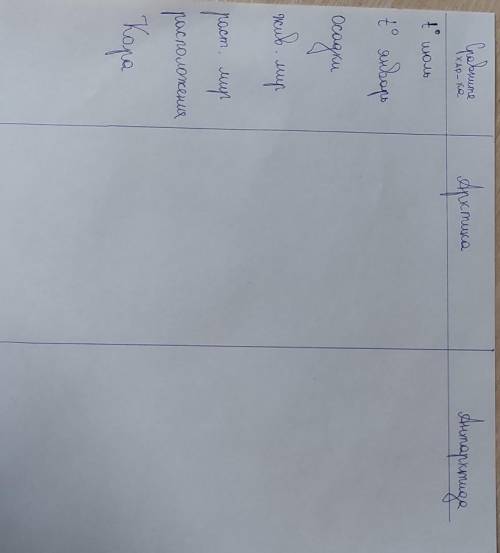 Сравните хар-ка
Арктика
Антарктида
t° июль
t° январь
осадки
жив. мир
раст. мир
расположения
Кора